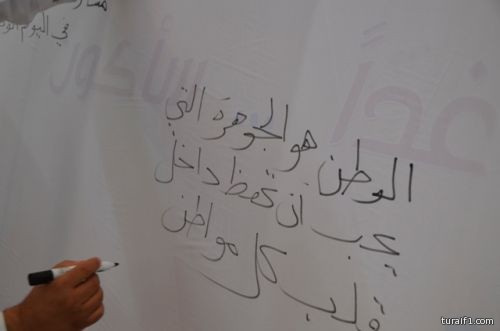 في اليوم
غداً سأكون
الوطن هو الجوهرة التي
يجب أن تحفظ داخل
قلب كل مواطن
turaif1.com